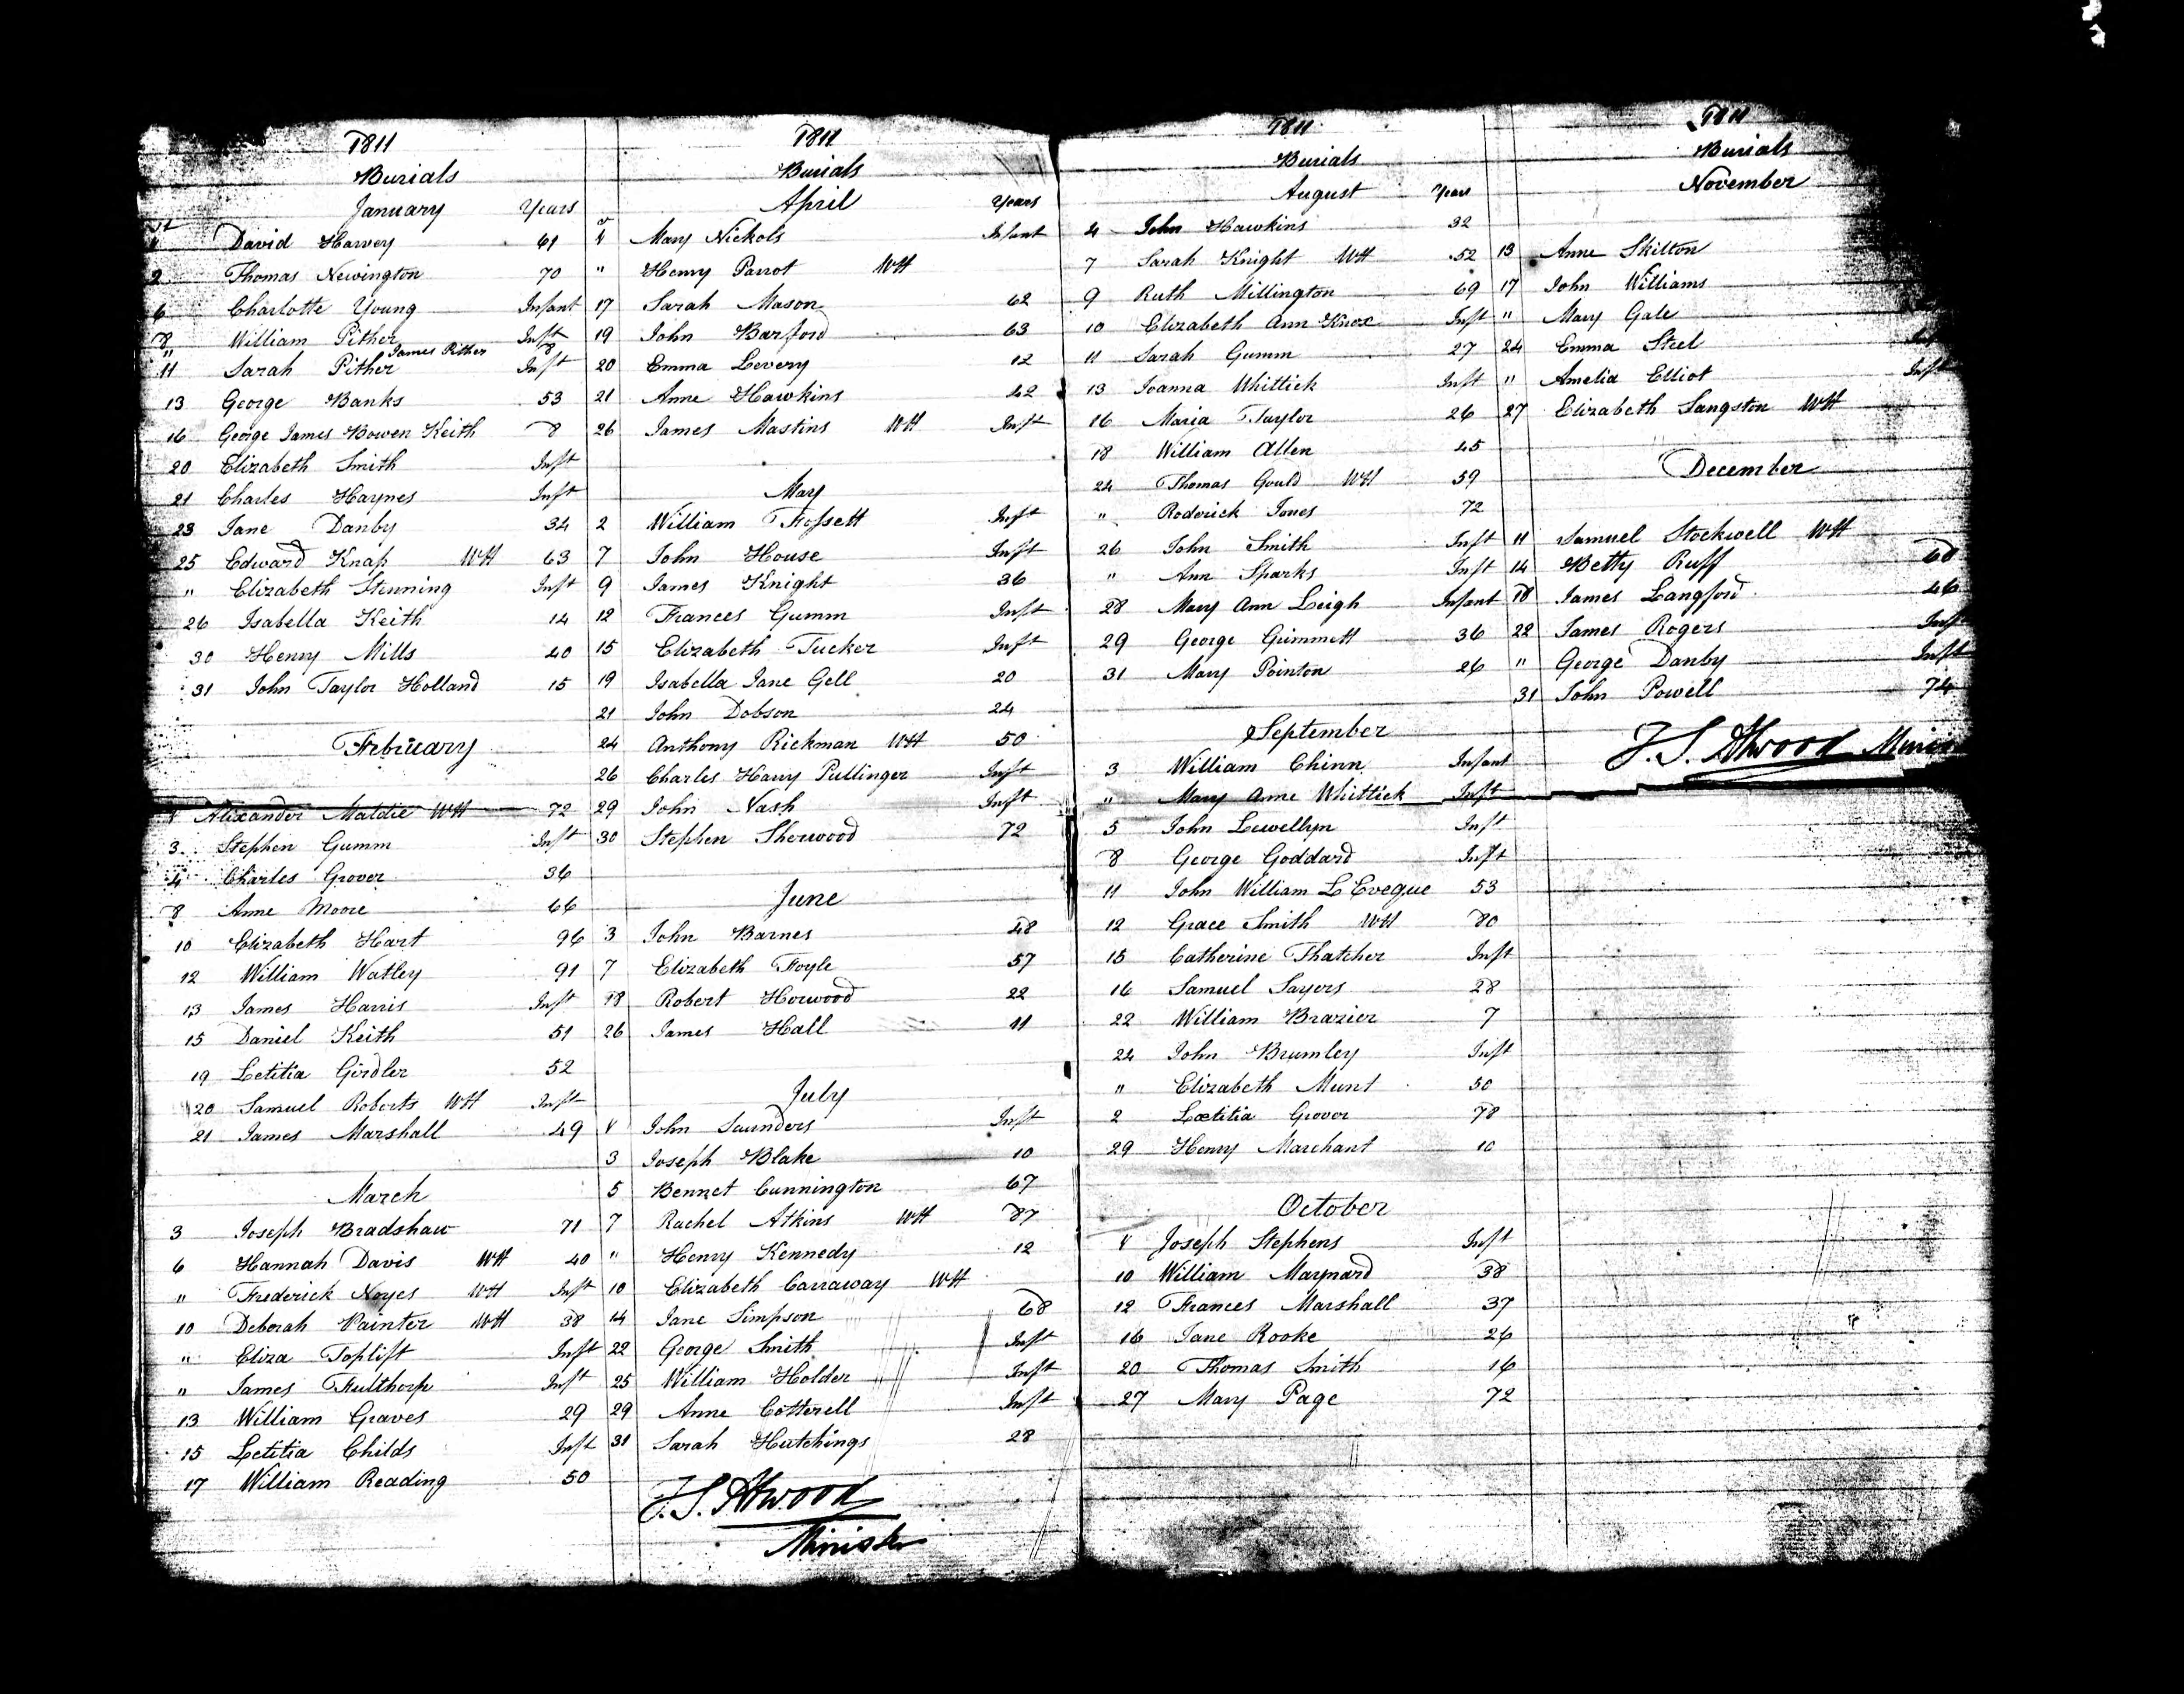 1811
Burials
January Years
1st David Harvey 61
2 Thomas Newington 70
6 Charlotte Young Infant
8 William Pither Inft
" James Pither 8
11 Sarah Pither Inft
13 George Banks 53
16 George James Bowen Keith 8
20 Elizabeth Smith Inft
21 Charles Haynes Inft
23 Jane Danby 34
25 Edward Knap WH 63
" Elizabeth Stenning Inft
26 Isabella Keith 14
30 Henry Mills 40
31 John Taylor Holland 15
February
1 Alexander Maldie WH 72
3 Stephen Gumm Inft
4 Charles Grover 36
8 Anne Moore 66
10 Elizabeth Hart 96
12 William Watley 91
13 James Harris Inft
15 Daniel Keith 51
19 Letitia Girdler 52
20 Samuel Roberts WH Inft
21 James Marshall 49
March
3 Joseph Bradshaw 71
6 Hannah Davis WH 40
" Frederick Noyes WH Inft
10 Deborah Painter WH 38
" Eliza Toplift Inft
" James Fulthorp Inft
13 William Graves 29
15 Letitia Childs Inft
17 William Reading 50
1811
Burials
April Years
Mary Nickols Infant
" Henry Parrot WH
17 Sarah Mason 62
19 John Barford 63
20 Emma Levery 12
21 Anne Hawkins 42
26 James Mastins WH Inft
May
2 William Fossett Inft
7 John House Inft
9 James Knight 36
12 Frances Gumm Inft
15 Elizabeth Tucker Inft
19 Isabella Jane Gell 20
21 John Dobson 24
24 Anthony Rickman WH 50
26 Charles Harry Pullinger Inft
29 John Nash Inft
30 Stephen Sherwood 72
June
3 John Barnes 48
7 Elizabeth Foyle 57
18 Robert Horwood 22
26 James Hall 11
July
1 John Saunders Inft
3 Joseph Blake 10
5 Bennet Cunnington 67
7 Rachel Atkins WH 87
" Henry Kennedy 12
10 Elizabeth Carraway WH
14 Jane Simpson 68
22 George Smith Inft
25 William Holder Inft
29 Anne Cotterell Inft
31 Sarah Hutchings 28
J. S. Atwood
Minister
1811
Burials
August Years
4 John Hawkins 32
7 Sarah Knight WH 52
9 Ruth Millington 69
10 Elizabeth Ann Knox Inft
11 Sarah Gumm 27
13 Joanna Whittick Inft
16 Maria Taylor 26
18 William Allen 45
24 Thomas Gould WH 59
" Roderick Jones 72
26 John Smith Inft
" Ann Sparks Inft
28 Mary Ann Leigh Infant
29 George Grimmett 36
31 Mary Pointon 26
September
3 William Chinn Infant
" Mary Anne Whittick Inft
5 John Lewellyn Inft
8 George Goddard Inft
11 John William L Eveque 53
12 Grace Smith WH 80
15 Catherine Thatcher Inft
16 Samuel Sayers 28
22 William Brazier 7
24 John Brumley Inft
" Elizabeth Munt 50
2 Lætitia Grover 78
29 Henry Marchant 10
October
1 Joseph Stephens Inft
10 William Maynard 38
12 Frances Marshall 37
16 Jane Rooke 26
20 Thomas Smith 16
27 Mary Page 72
1811
Burials
November
13 Anne Skilton
17 John Williams
" Mary Gale
24 Emma Steel
" Amelia Elliot Inft
27 Elizabeth Langston WH
December
11 Samuel Stockwell WH
14 Betty Ruff 60
18 James Langford 46
22 James Rogers Inft
" George Danby Inft
31 John Powell 74
J. S. Atwood